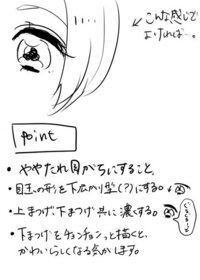 こんな感じで
よければ…。
Point
• ややたれ目がちにすること。
• 目玉の形を下広がり型(?)にする。
• 上まつげ下まつげ共に濃くする。
• 下まつげをチョンチョンっと描くと、
かわいらしくなる気がします。